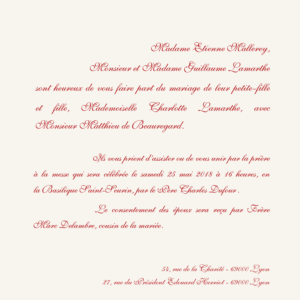 Madame Etienne Mallorey,
Monsieur et Madame Guillaume Lamarthe
sont heureux de vous faire part du mariage de leur petite-fille
et fille, Mademoiselle Charlotte Lamarthe, avec
Monsieur Matthieu de Beauregard.
Ils vous prient d'assister ou de vous unir par la prière
à la messe qui sera célébrée le samedi 25 mai 2018 à 16 heures, en
la Basilique Saint-Seurin, par le Père Charles Dufour.
Le consentement des époux sera reçu par Frère
Marc Delambre, cousin de la mariée.
54, rue de la Charité - 69000 Lyon
27, rue du Président Edouard Herriot - 69000 Lyon